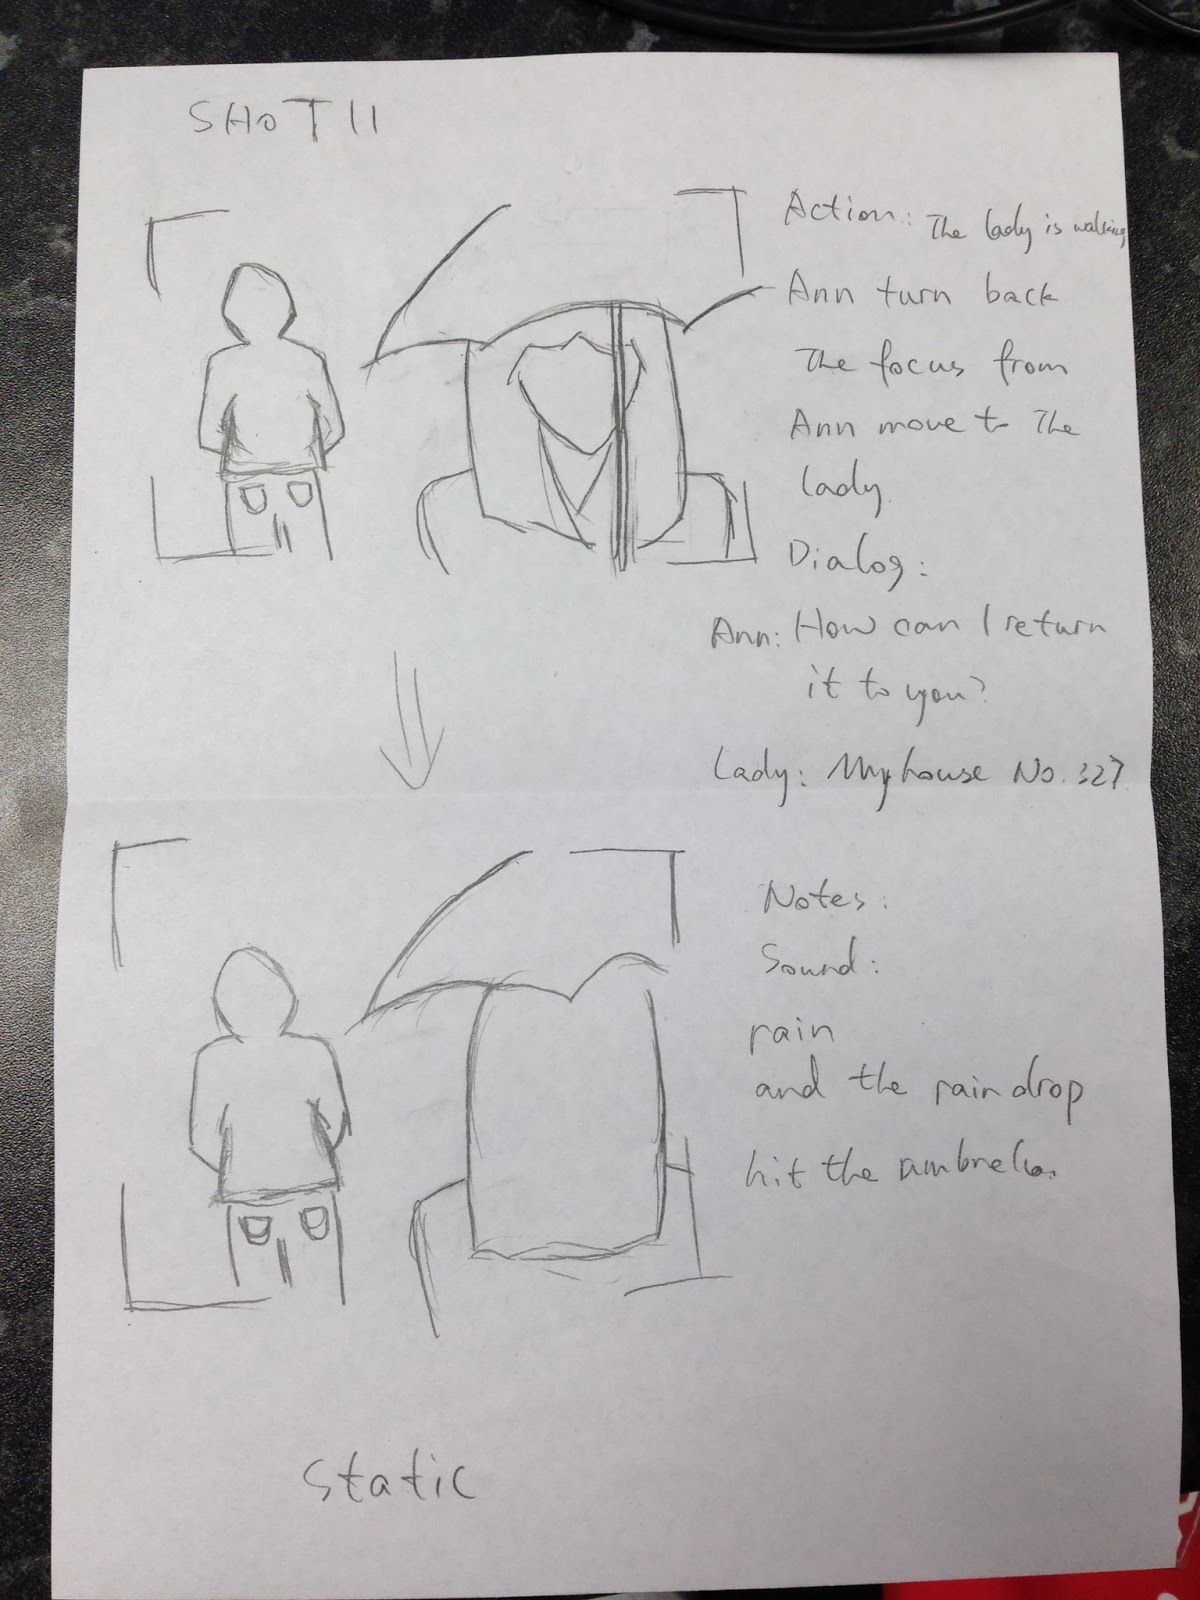 SHOT 11
Action: The lady is walking
Ann turn back
The focus from
Ann move to The
lady.
Dialog:
Ann: How can I return
it to you?
Lady: My house No. 327
Notes:
Sound:
rain
and the rain drop
hit the umbrella.
Static